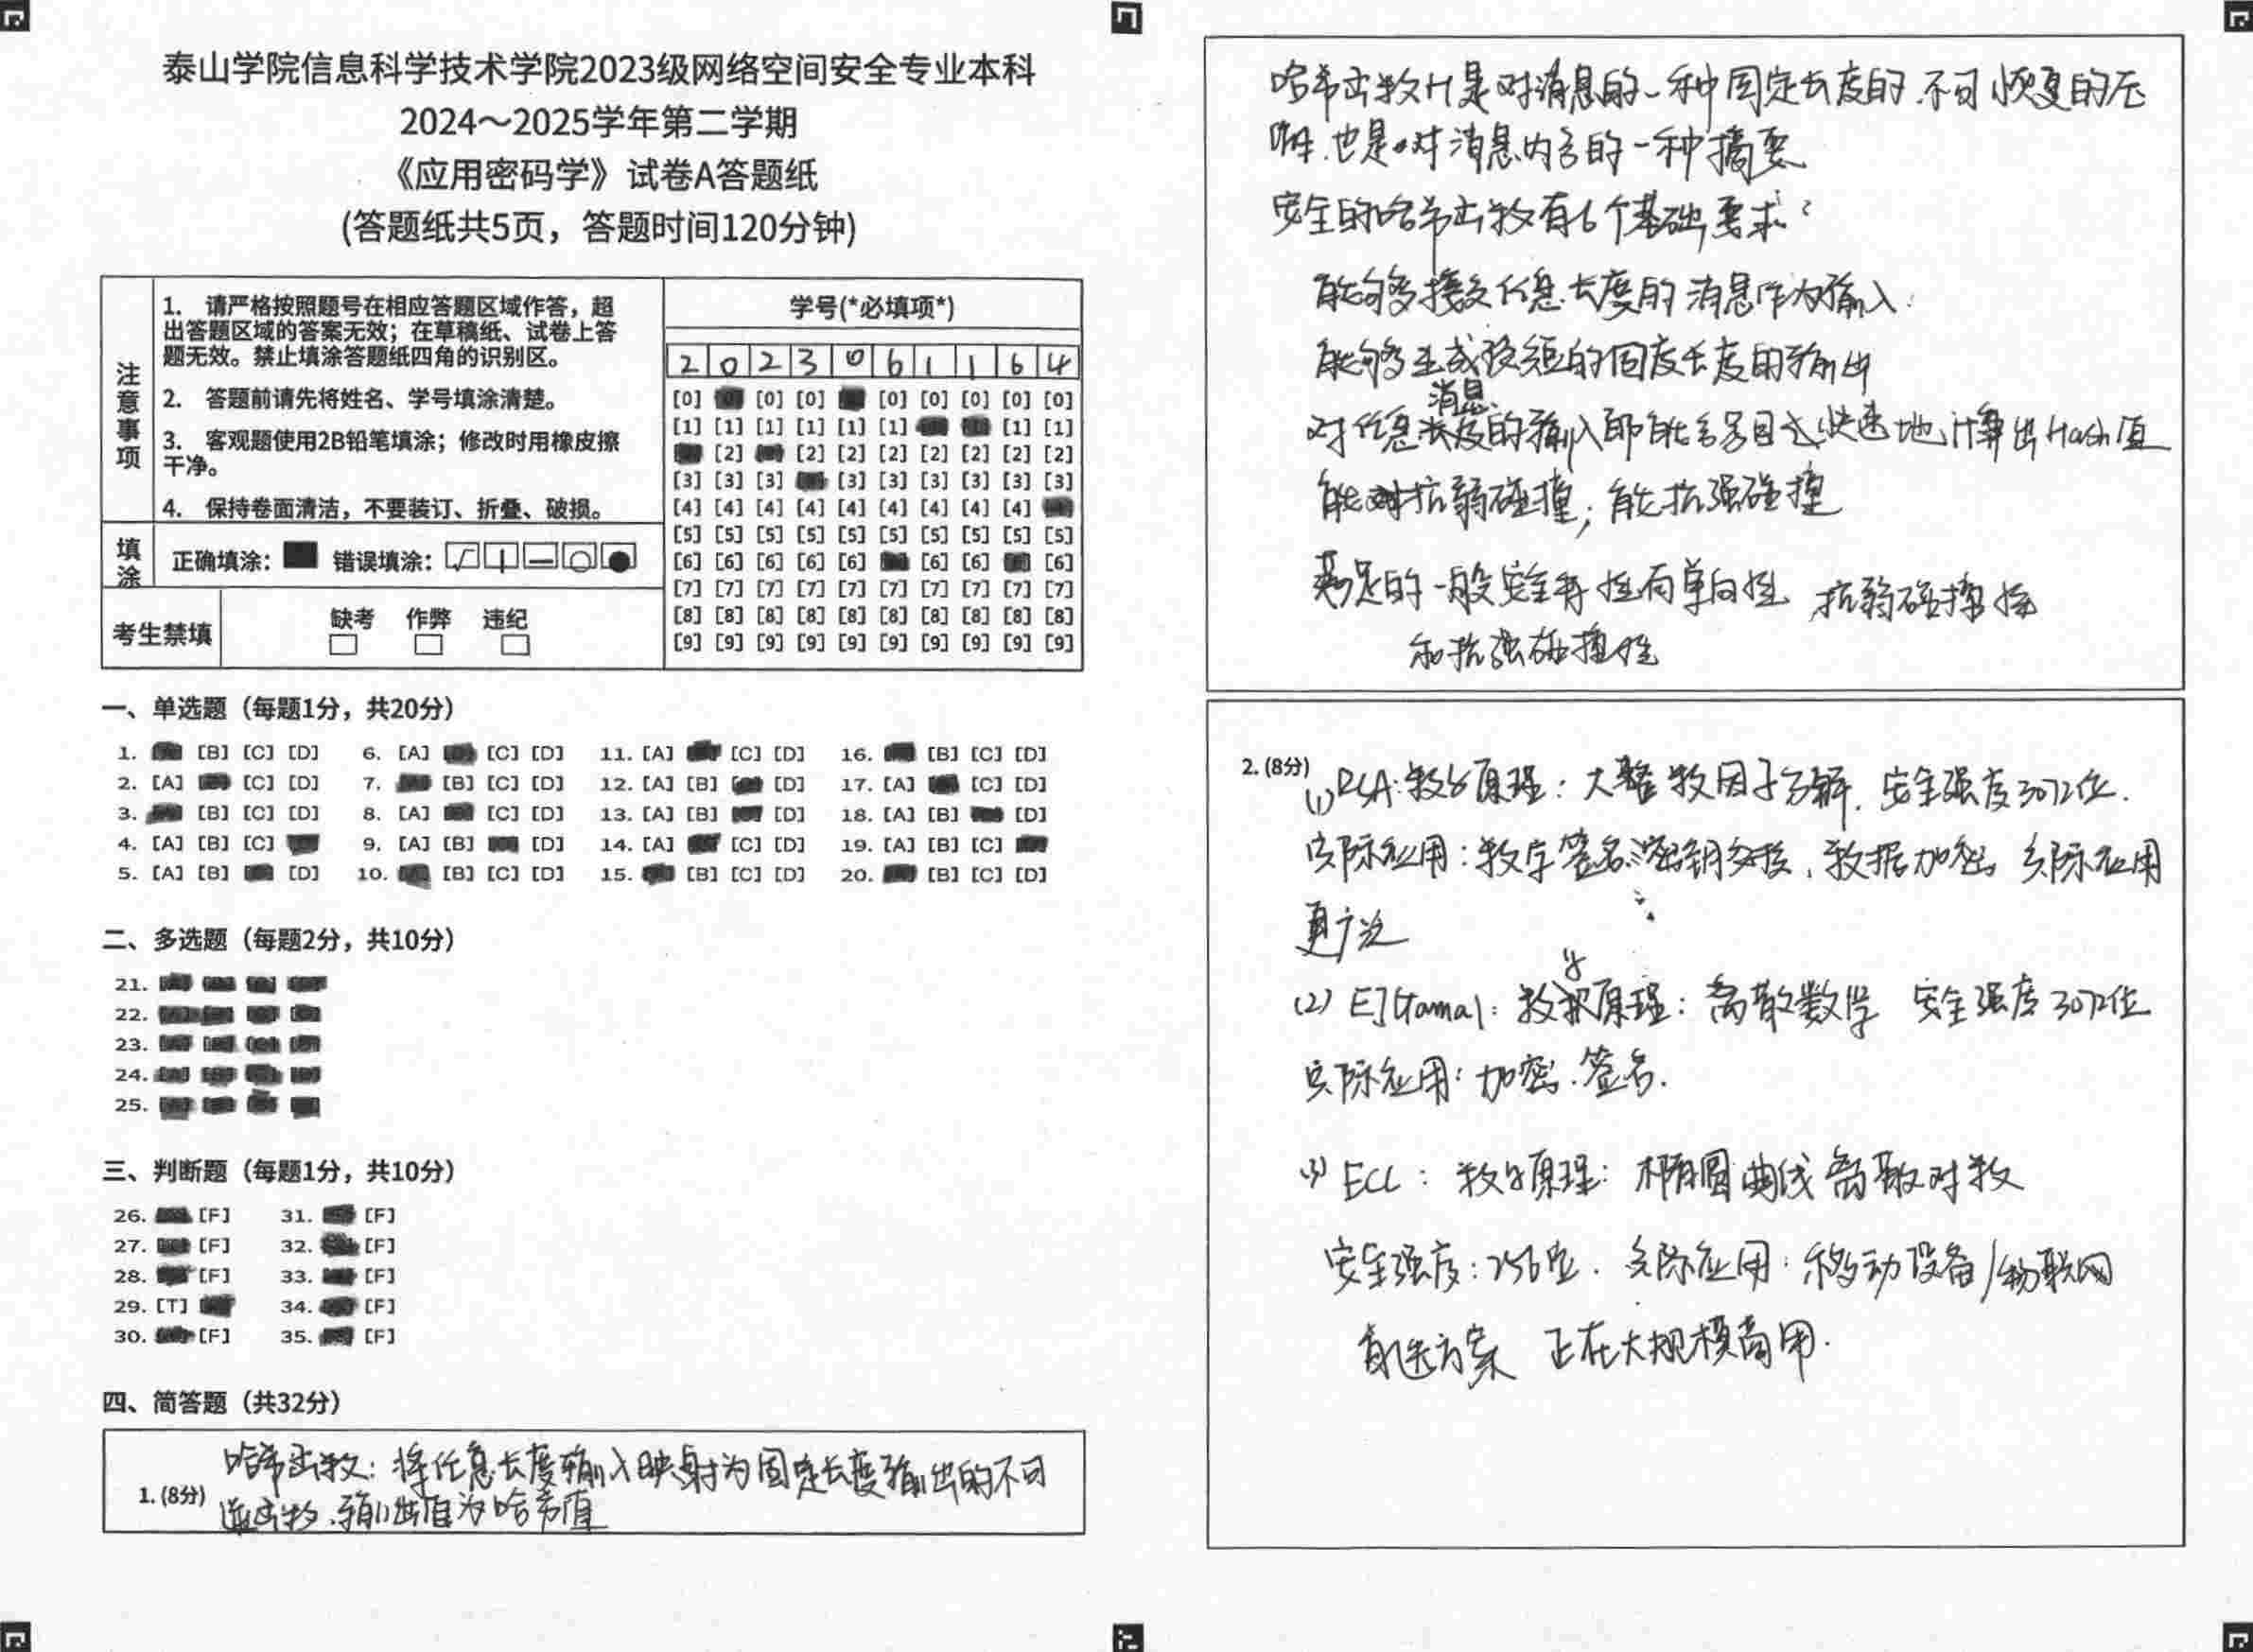 泰山学院信息科学技术学院2023级网络空间安全专业本科
2024～2025学年第二学期
《应用密码学》试卷A答题纸
(答题纸共5页，答题时间120分钟)
注意事项
1. 请严格按照题号在相应答题区域作答，超
出答题区域的答案无效；在草稿纸、试卷上答
题无效。禁止填涂答题纸四角的识别区。
2. 答题前请先将姓名、学号填涂清楚。
3. 客观题使用2B铅笔填涂；修改时用橡皮擦
干净。
4. 保持卷面清洁，不要装订、折叠、破损。
填涂
正确填涂： 错误填涂：
考生禁填
缺考 作弊 违纪
学号(*必填项*)
2 0 2 3 0 6 1 1 6 4
[0] [0] [0] [0] [0] [0] [0] [0]
[1] [1] [1] [1] [1] [1] [1] [1]
[2] [2] [2] [2] [2] [2] [2] [2]
[3] [3] [3] [3] [3] [3] [3] [3] [3]
[4] [4] [4] [4] [4] [4] [4] [4] [4]
[5] [5] [5] [5] [5] [5] [5] [5] [5] [5]
[6] [6] [6] [6] [6] [6] [6] [6]
[7] [7] [7] [7] [7] [7] [7] [7] [7] [7]
[8] [8] [8] [8] [8] [8] [8] [8] [8] [8]
[9] [9] [9] [9] [9] [9] [9] [9] [9] [9]
一、单选题（每题1分，共20分）
1. [B] [C] [D] 6. [A] [C] [D] 11. [A] [C] [D] 16. [B] [C] [D]
2. [A] [C] [D] 7. [B] [C] [D] 12. [A] [B] [D] 17. [A] [C] [D]
3. [B] [C] [D] 8. [A] [C] [D] 13. [A] [B] [D] 18. [A] [B] [D]
4. [A] [B] [C] 9. [A] [B] [D] 14. [A] [C] [D] 19. [A] [B] [C]
5. [A] [B] [D] 10. [B] [C] [D] 15. [B] [C] [D] 20. [B] [C] [D]
二、多选题（每题2分，共10分）
21.
22.
23.
24.
25.
三、判断题（每题1分，共10分）
26. [F] 31. [F]
27. [F] 32. [F]
28. [F] 33. [F]
29. [T] 34. [F]
30. [F] 35. [F]
四、简答题（共32分）
1. (8分)
哈希函数：将任意长度输入映射为固定长度输出的不可
逆函数.输出值为哈希值
哈希函数H是对消息的一种固定长度的.不可恢复的压
缩.也是对消息内容的一种摘要
安全的哈希函数有6个基础要求：
能够接受任意长度的消息作为输入；
能够生成较短的固定长度的输出
对任意消息的输入即能容易且快速地计算出Hash值
能对抗弱碰撞；能抗强碰撞
满足的一般安全特性有单向性 抗弱碰撞性
和抗强碰撞性
2. (8分)
(1) RSA：数学原理：大整数因子分解. 安全强度3072位.
实际应用：数字签名.密钥交换、数据加密 实际应用
更广泛
(2) ElGamal：数学原理：离散数学 安全强度3072位
实际应用：加密.签名.
(3) ECC：数学原理：椭圆曲线离散对数
安全强度：256位. 实际应用：移动设备/物联网
首选方案 正在大规模商用.